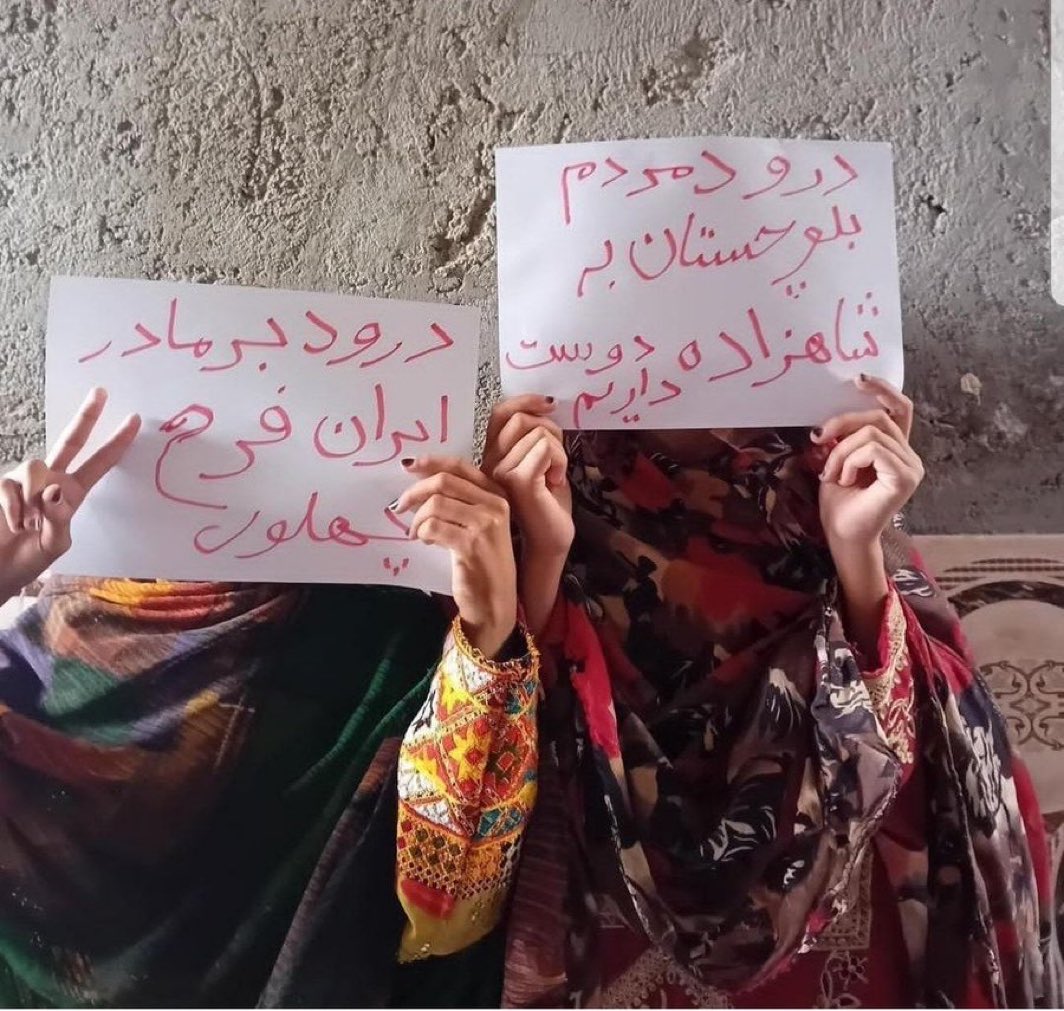 درود مردم
بلوچستان به
شاهزاده دوست
داریم
درود بر مادر
ایران فرح
پهلوی